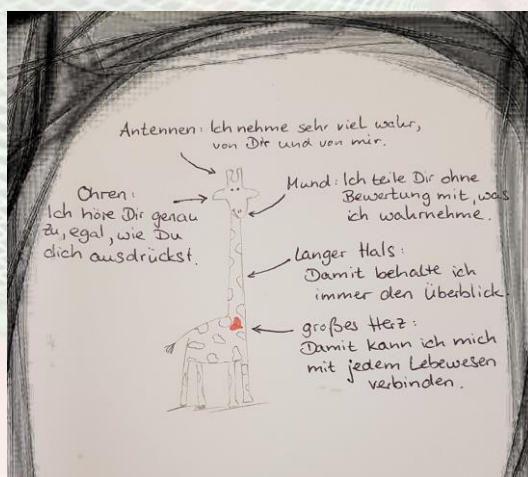 Antennen: Ich nehme sehr viel wahr,
von Dir und von mir.
Ohren:
Ich höre Dir genau
zu, egal, wie Du
dich ausdrückst.
Mund: Ich teile Dir ohne
Bewertung mit, was
ich wahrnehme.
Langer Hals:
Damit behalte ich
immer den Überblick.
großes Herz:
Damit kann ich mich
mit jedem Lebewesen
verbinden.